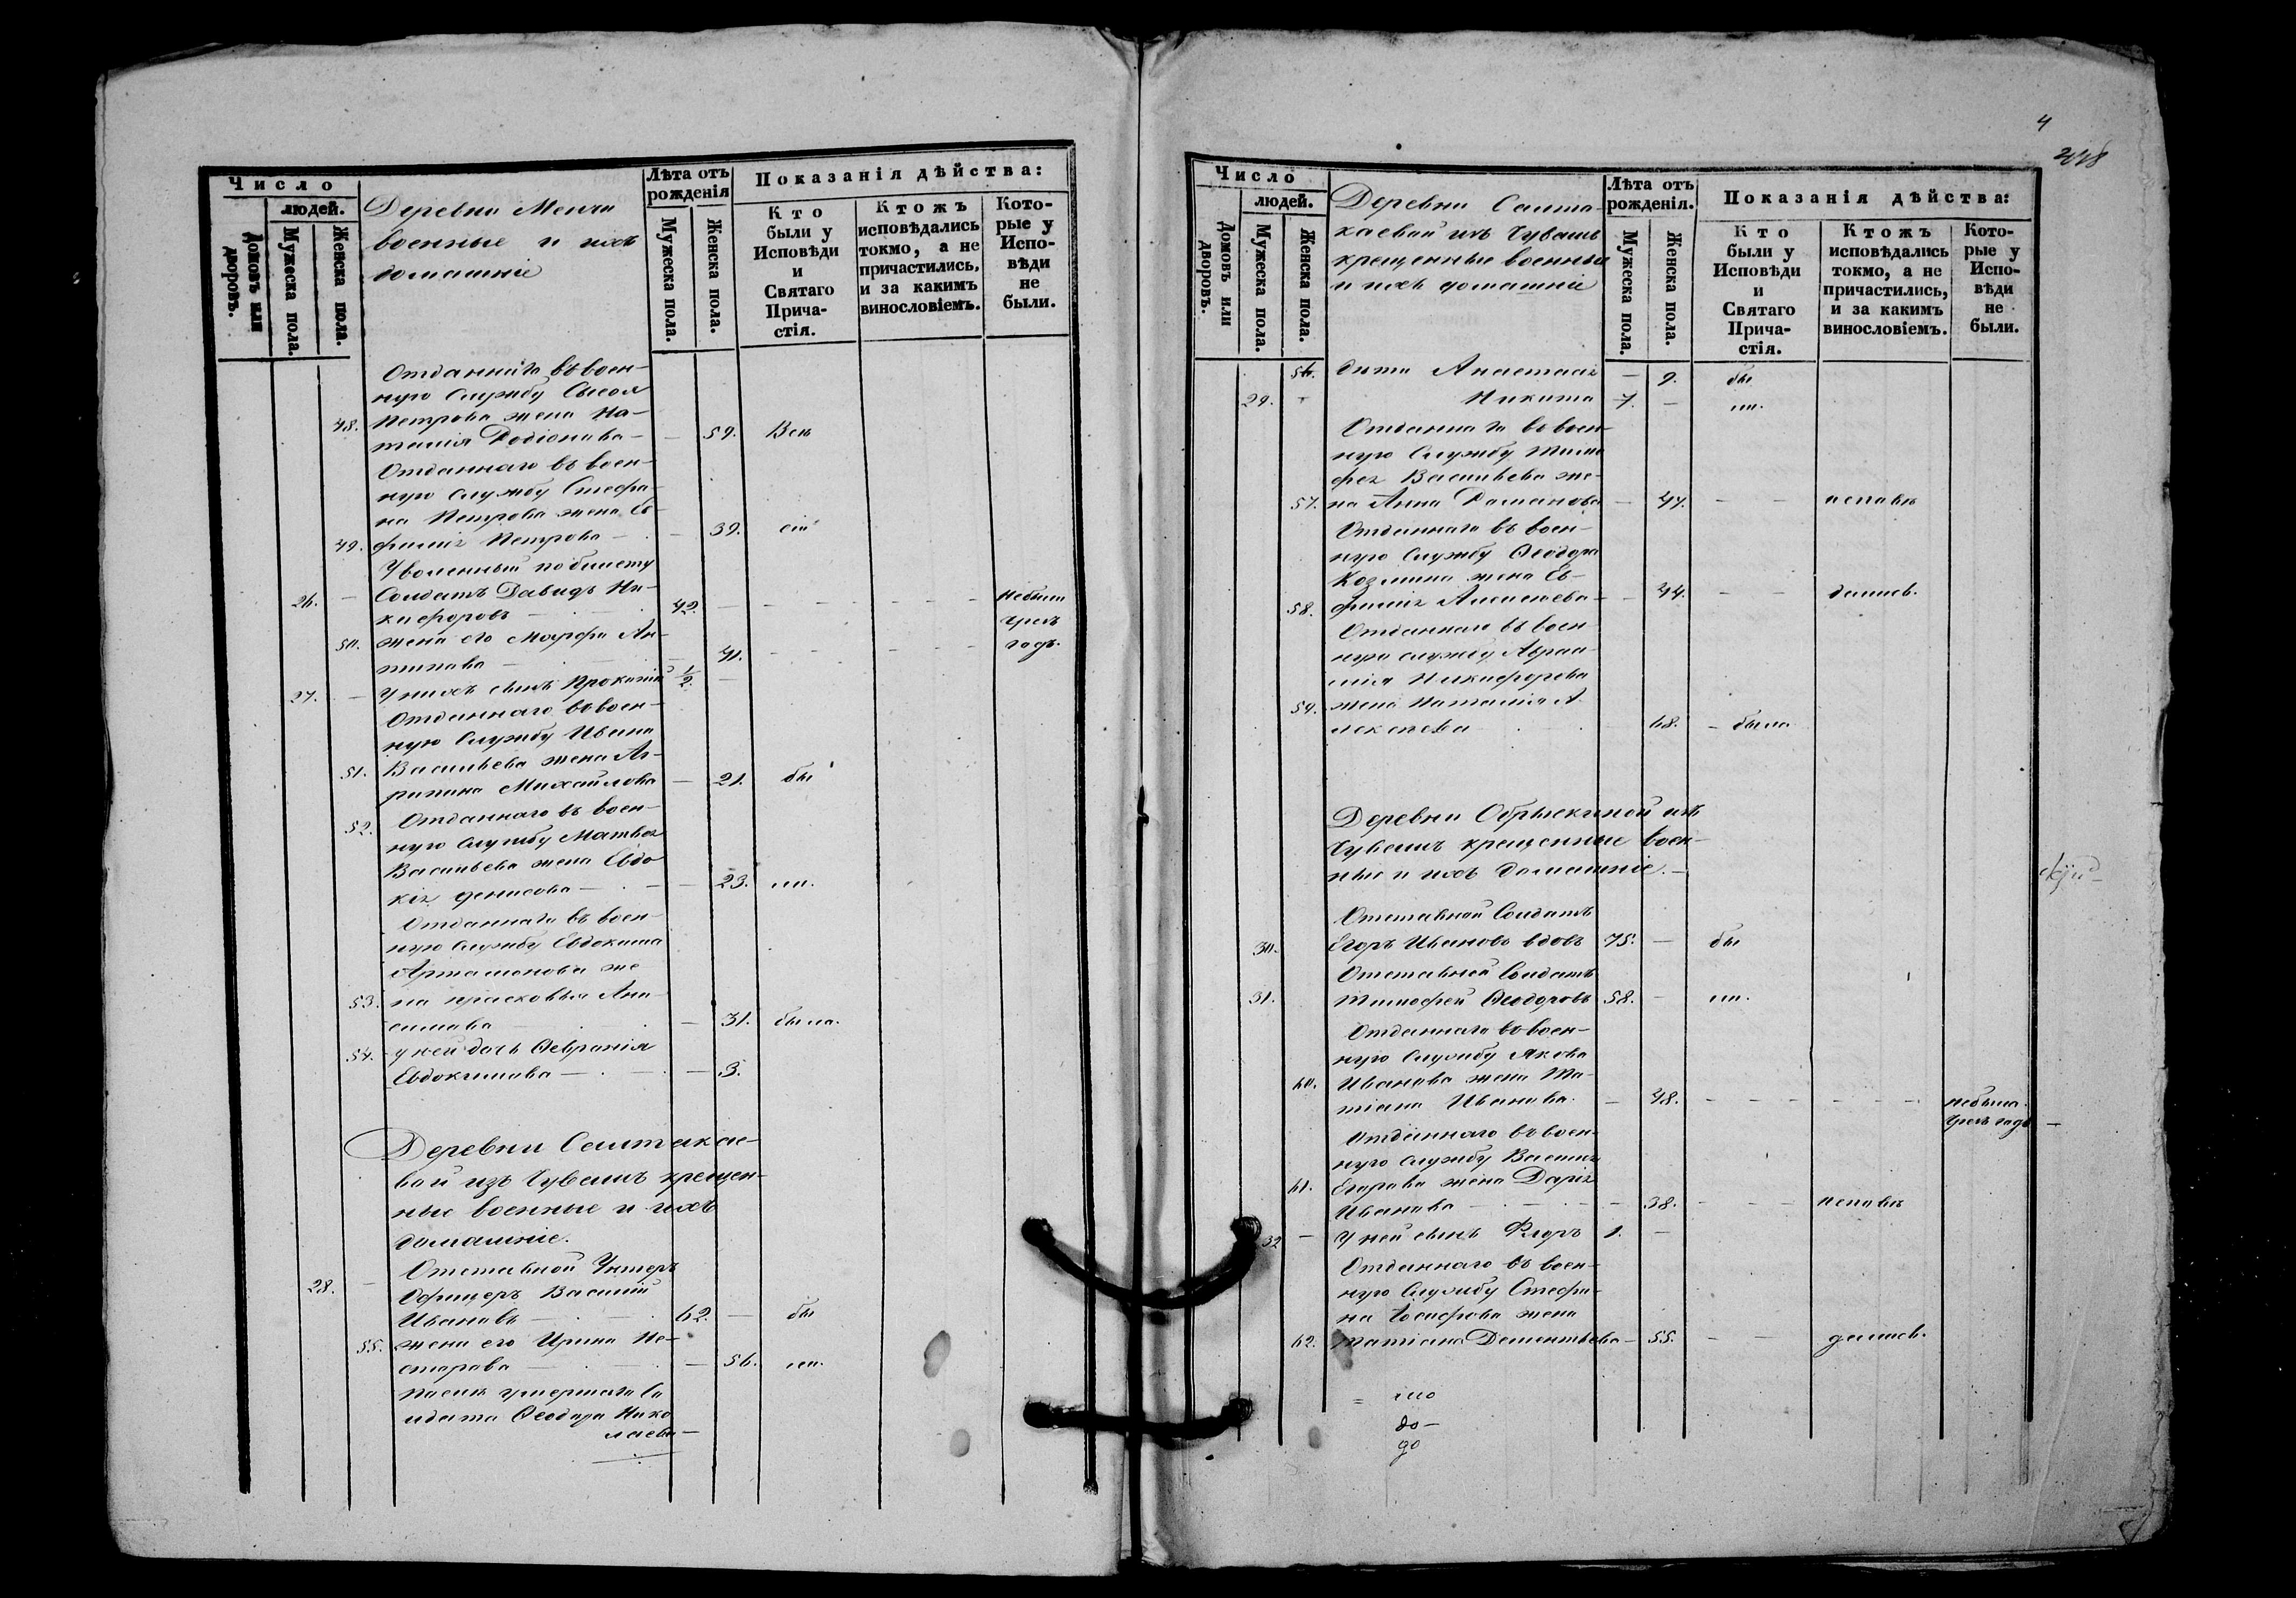 Число
людей.
Домовъ или дворовъ.
Мужеска пола.
Женска пола.
Деревни Менчи
военные и ихъ
домашніе
Лѣта отъ
рожденія
Мужеска пола.
Женска пола.
Показанія дѣйства:
Кто
были у
Исповѣди
и
Святаго
Прича-
стія.
Ктожъ
исповѣдались
токмо, а не
причастились,
и за какимъ
винословіемъ.
Кото-
рые у
Испо-
вѣди
не
были.
Отданнаго въ воен-
ную службу Сысоя
48. Петрова жена На-
талія Родіонова — — 59.
Отданнаго въ воен-
ную службу Стефа-
на Петрова жена Ев-
49. фимія Петрова — — 39.
Уволенный по билету
26. — Солдатъ Давидъ Ни- небыли
кифоровъ 42. — чрезъ
50. жена его Марфа Ан- годъ.
типова — 41.
27. — У нихъ сынъ Прокопій 1/2. —
Отданнаго въ воен-
ную службу Ивана
51. Васильева жена Аг-
рипина Михайлова — 21. бы
52. Отданнаго въ воен-
ную службу Матвея
Васильева жена Евдо
кія Денисова — — 23. ли.
Отданнаго въ воен-
ную службу Евдокима
Артамонова же
53. на Прасковья Ани-
симова — 31. была.
54. у ней дочь Февронія
Евдокимова — — 3.
Деревни Салтакае-
вой изъ Чувашъ крещен-
ные военные и ихъ
домашніе.
28. — Отставной Унтеръ
Офицеръ Василій
Ивановъ — 62. — бы
55. жена его Ирина Не-
сторова — — 56. ли.
Пасынк умершаго Со
лдата Феодора Нико
лаева —
4
Число
людей.
Домовъ или дворовъ.
Мужеска пола.
Женска пола.
Деревни Салта-
каевой изъ Чувашъ
крещенные военные
и ихъ домашніе
Лѣта отъ
рожденія.
Мужеска пола.
Женска пола.
Показанія дѣйства:
Кто
были у
Исповѣди
и
Святаго
Прича-
стія.
Ктожъ
исповѣдались
токмо, а не
причастились,
и за какимъ
винословіемъ.
Кото-
рые у
Испо-
вѣди
не
были.
56. дѣти Анастасія — 9. бы
29. Никита 7. — ли.
Отданнаго въ воен-
ную службу Тимо
фея Васильева же-
57. на Анна Романова — 47. — — исповѣ
Отданнаго въ воен-
ную службу Феодора
Козмина жена Ев-
58. фимія Алексѣева — 44. — — дались.
Отданнаго въ воен
ную службу Авраа-
мія Никифорова
59. жена Наталія А
лексѣева 68. — была
Деревни Обрыскиной изъ
Чувашъ крещенные воен-
ные и ихъ домашніе. —
Отставной Солдатъ
30. Егоръ Ивановъ вдовъ 75. — бы
Отставной Солдатъ
31. Тимофей Феодоровъ 58. — ли.
Отданнаго въ воен-
ную службу Якова
60. Иванова жена Та-
тіана Иванова. — 48. небыла.
чрезъ годъ —
Отданнаго въ воен-
ную службу Василія
61. Егорова жена Дарія
Иванова — — 38. исповѣ
32 — У ней сынъ Флоръ 1. —
Отданнаго въ воен-
ную службу Стефа-
на Іосифова жена
62. Татіана Дементьева — 55. — — дались.
до —
до